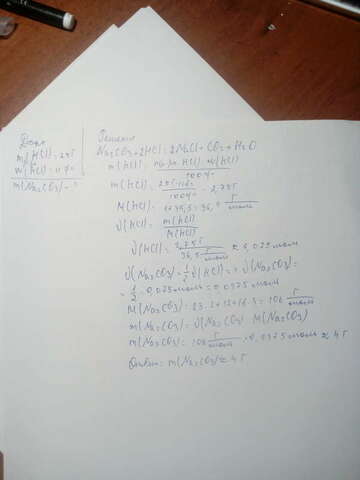 Дано
m(HCl) = 25г
w(HCl) = 11%
m(Na₂CO₃) - ?
Решение
Na₂CO₃ + 2HCl = 2NaCl + CO₂ + H₂O
m(HCl) = m(р-ра HCl) · w(HCl) / 100%
m(HCl) = 25г · 11% / 100% = 2,75г
M(HCl) = 1 + 35,5 = 36,5 г/моль
ν(HCl) = m(HCl) / M(HCl)
ν(HCl) = 2,75г / 36,5 г/моль ≈ 0,075 моль
ν(Na₂CO₃) = 1/2 ν(HCl) => ν(Na₂CO₃) =
= 1/2 · 0,075 моль = 0,0375 моль
M(Na₂CO₃) = 23·2 + 12 + 16·3 = 106 г/моль
m(Na₂CO₃) = ν(Na₂CO₃) · M(Na₂CO₃)
m(Na₂CO₃) = 106 г/моль · 0,0375 моль ≈ 4г
Ответ: m(Na₂CO₃) ≈ 4г